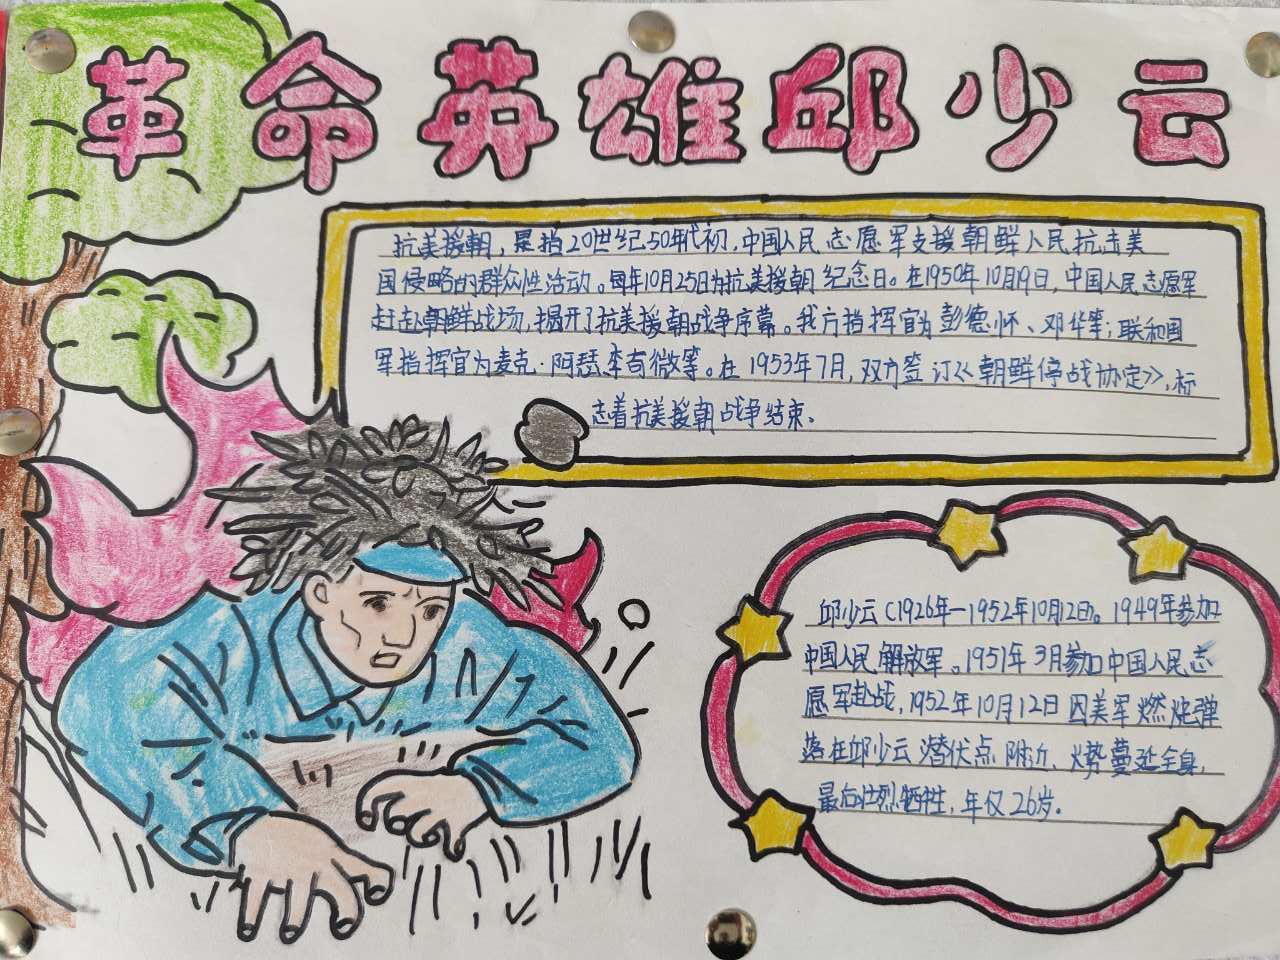 革命英雄邱少云
抗美援朝，是指20世纪50年代初，中国人民志愿军支援朝鲜人民抗击美
国侵略的群众性活动。每年10月25日为抗美援朝纪念日。在1950年10月19日，中国人民志愿军
赶赴朝鲜战场，揭开了抗美援朝战争序幕。我方指挥官为彭德怀、邓华等；联和国
军指挥官为麦克·阿瑟，李奇微等。在1953年7月，双方签订《朝鲜停战协定》，标
志着抗美援朝战争结束.
邱少云（1926年—1952年10月12日)。1949年参加
中国人民解放军。1951年3月参加中国人民志
愿军赴战，1952年10月12日因美军燃烧弹
落在邱少云潜伏点附近、火势蔓延全身，
最后壮烈牺牲，年仅26岁.